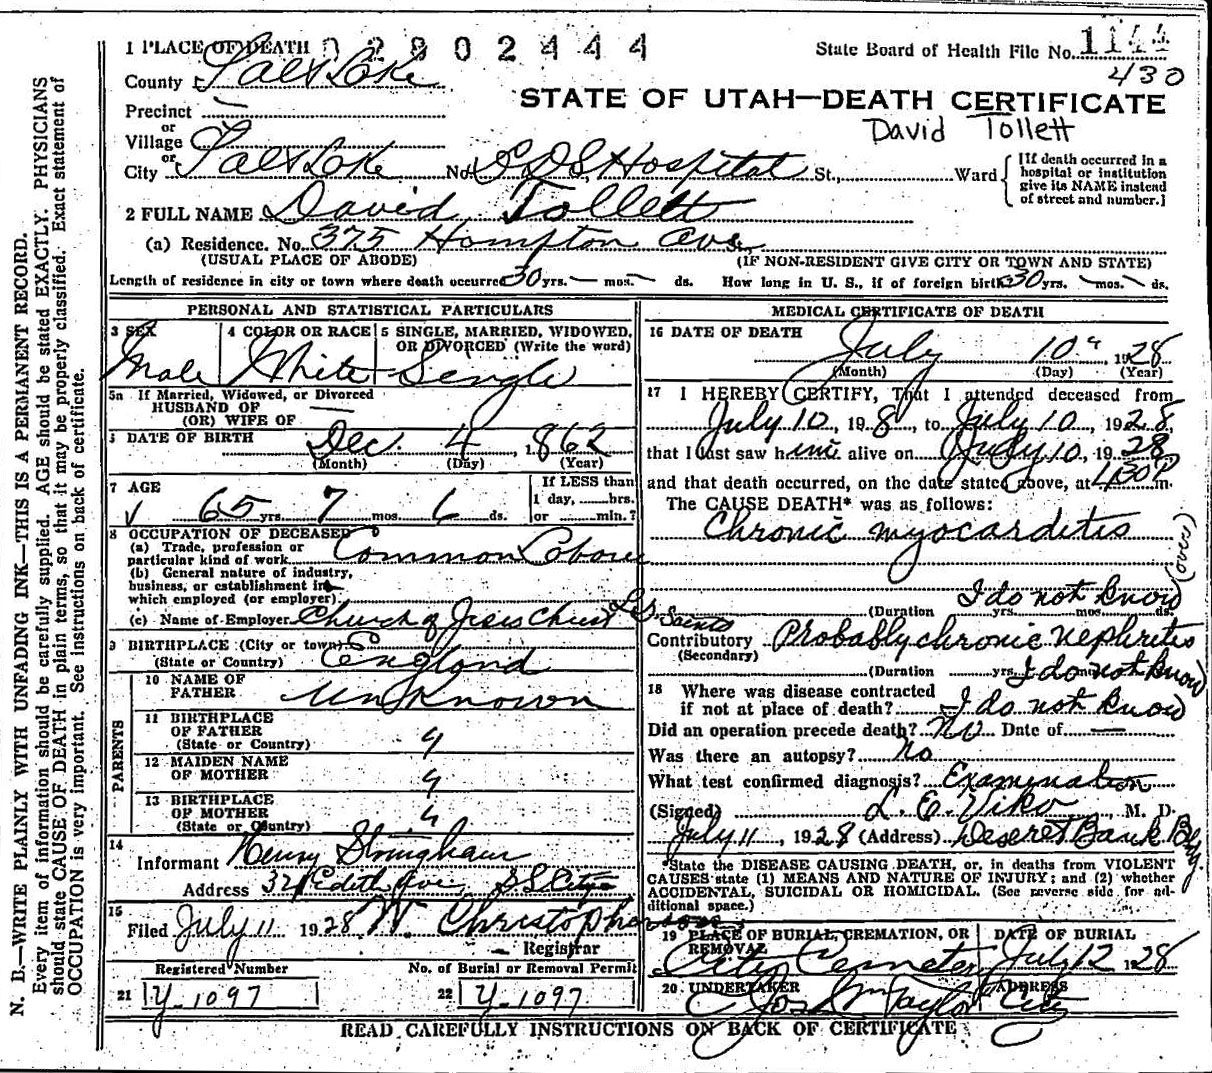 1 PLACE OF DEATH 0 2 8 0 2 4 4 4
State Board of Health File No. 1144
County Salt Lake
430
STATE OF UTAH—DEATH CERTIFICATE
Precinct —
David Tollett
or
Village
or
City Salt Lake No. LDS Hospital St., Ward
[If death occurred in a
hospital or institution
give its NAME instead
of street and number.]
2 FULL NAME David Tollett
(a) Residence. No. 375 Hampton Ave. St.
(USUAL PLACE OF ABODE) (IF NON-RESIDENT GIVE CITY OR TOWN AND STATE)
Length of residence in city or town where death occurred 30 yrs. — mos. — ds. How long in U. S., if of foreign birth? 30 yrs. — mos. — ds.
PERSONAL AND STATISTICAL PARTICULARS
3 SEX
Male
4 COLOR OR RACE
White
5 SINGLE, MARRIED, WIDOWED,
OR DIVORCED (Write the word)
Single
5a If Married, Widowed, or Divorced
HUSBAND OF —
(OR) WIFE OF
6 DATE OF BIRTH
Dec. 4, 1862
(Month) (Day) (Year)
7 AGE
65 yrs. 7 mos. 6 ds.
If LESS than
1 day, hrs.
or min.?
8 OCCUPATION OF DECEASED
(a) Trade, profession or
particular kind of work Common Laborer
(b) General nature of industry,
business, or establishment in
which employed (or employer)
(c) Name of Employer Church of Jesus Christ L.D. Saints
9 BIRTHPLACE (City or town)
(State or Country) England
PARENTS
10 NAME OF
FATHER Unknown
11 BIRTHPLACE
OF FATHER
(State or Country) "
12 MAIDEN NAME
OF MOTHER "
13 BIRTHPLACE
OF MOTHER
(State or Country) "
14
Informant Henry Stringham
Address 321 Edith Ave, S L City
15
Filed July 11 1928 W. Christopherson
Registrar
Registered Number No. of Burial or Removal Permit
21 Y-1097 22 Y-1097
MEDICAL CERTIFICATE OF DEATH
16 DATE OF DEATH
July 10", 1928
(Month) (Day) (Year)
17 I HEREBY CERTIFY, That I attended deceased from
July 10, 198, to July 10, 1928,
that I last saw him alive on July 10, 1928
and that death occurred, on the date stated above, at 430 P m.
The CAUSE DEATH* was as follows:
Chronic myocarditis
(over)
I do not know
(Duration yrs. mos. ds.
Contributory Probably chronic nephritis
(Secondary)
(Duration yrs. mos. I do not know
18 Where was disease contracted
if not at place of death? I do not know
Did an operation precede death? No Date of —
Was there an autopsy? No
What test confirmed diagnosis? Examination
(Signed) L. E. Viko, M. D.
July 11, 1928 (Address) Deseret Bank Bldg.
*State the DISEASE CAUSING DEATH, or, in deaths from VIOLENT
CAUSES state (1) MEANS AND NATURE OF INJURY; and (2) whether
ACCIDENTAL, SUICIDAL OR HOMICIDAL. (See reverse side for ad-
ditional space.)
19 PLACE OF BURIAL, CREMATION, OR
REMOVAL
City Cemetery
DATE OF BURIAL
July 12 1928
20 UNDERTAKER
Jos. Wm Taylor
ADDRESS
City
READ CAREFULLY INSTRUCTIONS ON BACK OF CERTIFICATE
N. B.—WRITE PLAINLY WITH UNFADING INK—THIS IS A PERMANENT RECORD.
Every item of information should be carefully supplied. AGE should be stated EXACTLY. PHYSICIANS
should state CAUSE OF DEATH in plain terms, so that it may be properly classified. Exact statement of
OCCUPATION is very important. See instructions on back of certificate.